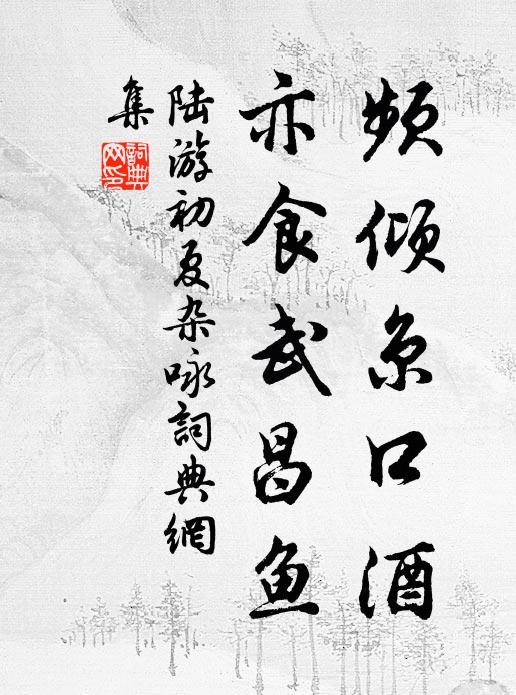 频倾京口酒
亦食武昌鱼
陆游初夏杂咏詞典網
集
詞典网印